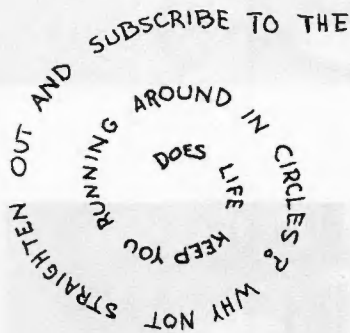 DOES LIFE KEEP YOU RUNNING AROUND IN CIRCLES? WHY NOT STRAIGHTEN OUT AND SUBSCRIBE TO THE